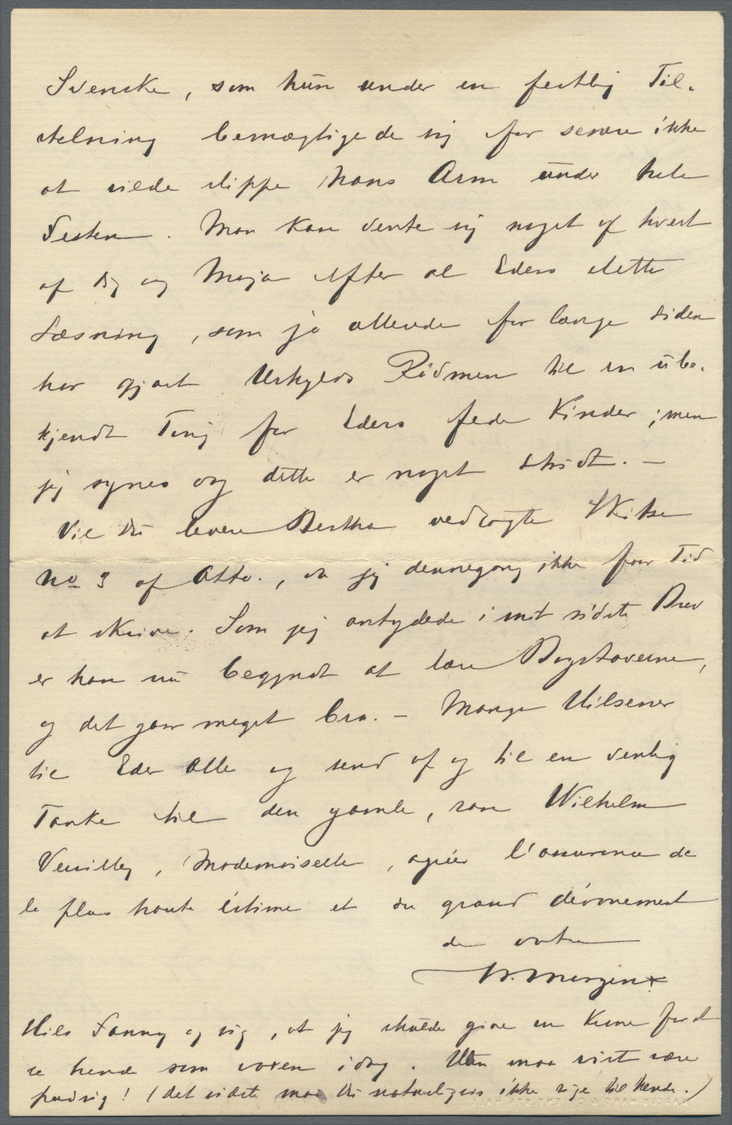 Svenske, som hun under en festlig Til-
stelning bemægtigede sig for senere ikke
at vilde slippe hans Arm under hele
Festen. Man kan vente sig noget af hvert
af Dig og Maja efter al Eders slette
Læsning, som jo allerede for længe siden
har gjort Uskylds Rødmen til en ube-
kjendt Ting for Eders fede Kinder; men
jeg synes og dette er noget stridt. –
Vil Du levere Bertha vedlagte Skitse
No 3 af Otto., da jeg dennegang ikke faar Tid
at skrive. Som jeg antydede i mit sidste Brev
er han nu begyndt at lære Bogstaverne,
og det gaar meget bra. – Mange Hilsener
til Eder Alle og send af og til en venlig
Tanke til den gamle, rare Wilhelm
Veuillez, Mademoiselle, agréer l'assurance de
la plus haute éstime et du grand dévouement
de votre
Hils Fanny og sig, at jeg skulde give en Krone for at
se hende som voxen idag. Hun maa vist være
pudsig! (det sidste maa Du naturligvis ikke sige til hende.)